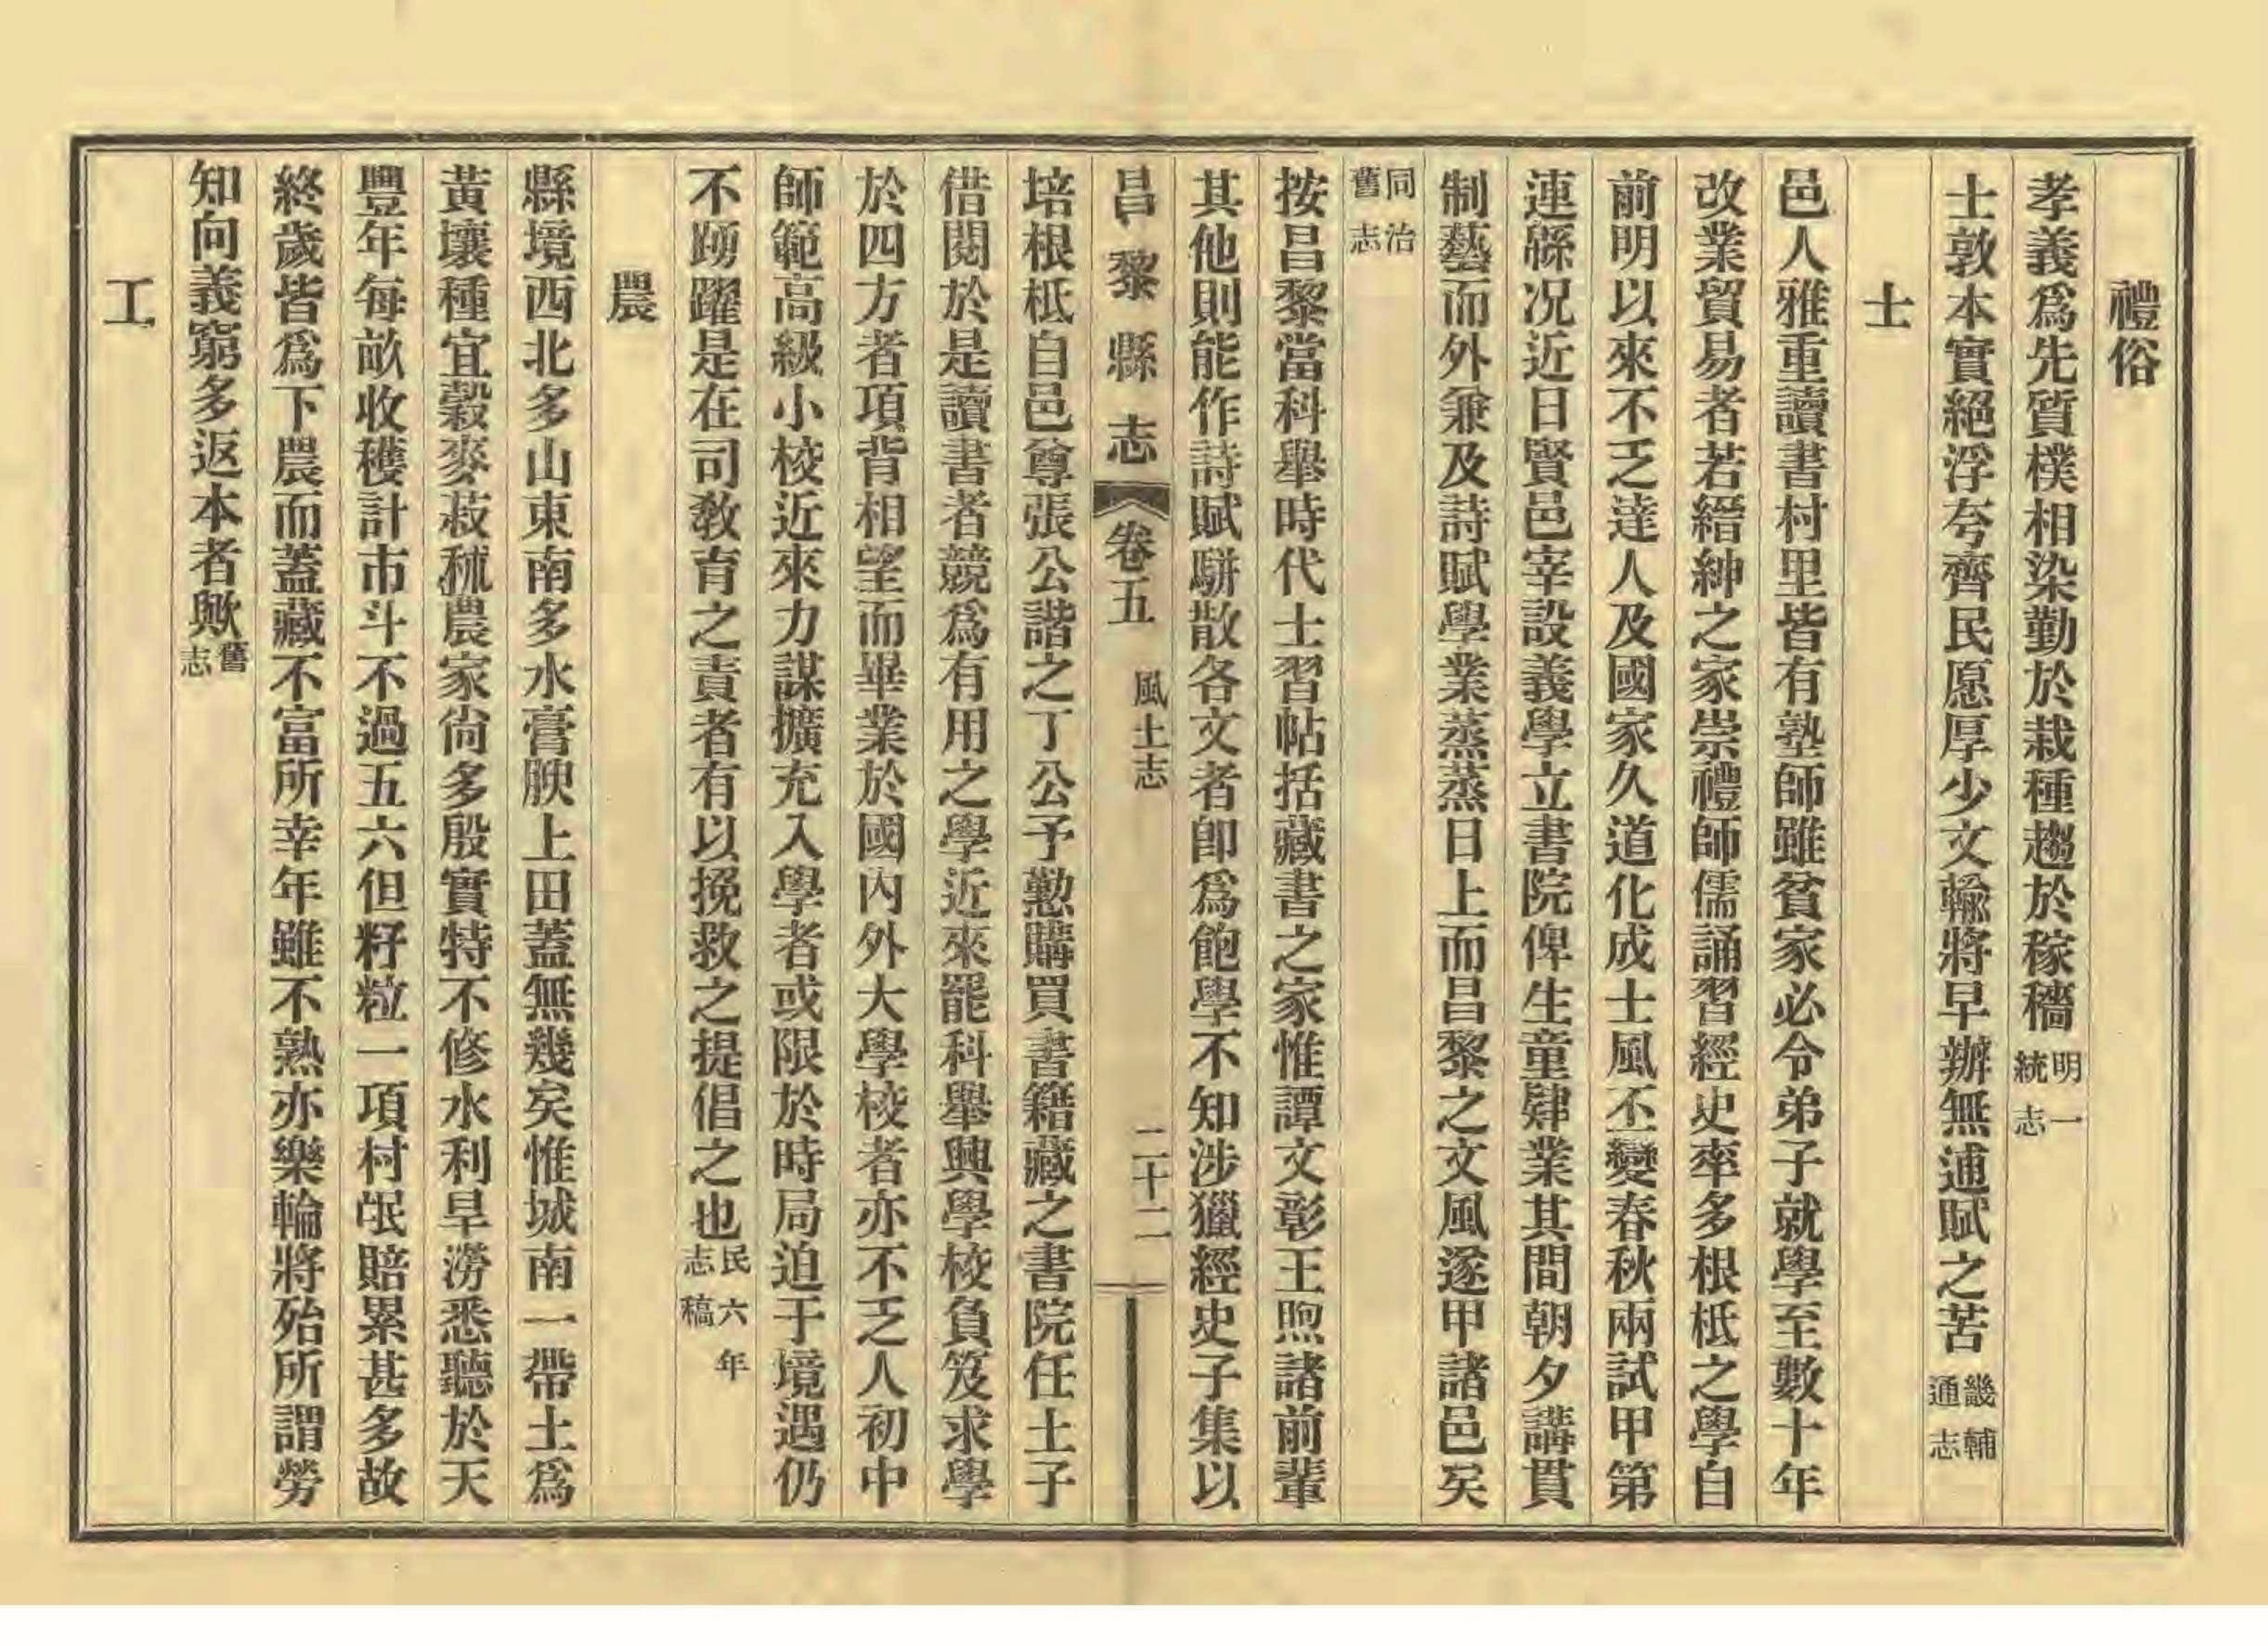 禮俗
孝義爲先質樸相染勤於栽種趨於稼穡明一統志
士敦本實絕浮夸齊民愿厚少文輸將早辦無逋賦之苦畿輔通志
士
邑人雅重讀書村里皆有塾師雖貧家必令弟子就學至數十年
改業貿易者若縉紳之家崇禮師儒誦習經史率多根柢之學自
前明以來不乏達人及國家久道化成士風丕變春秋兩試甲第
連緜况近日賢邑宰設義學立書院俾生童肄業其間朝夕講貫
制藝而外兼及詩賦學業蒸蒸日上而昌黎之文風遂甲諸邑矣
同治舊志
按昌黎當科舉時代士習帖括藏書之家惟譚文彰王煦諸前輩
其他則能作詩賦駢散各文者卽爲飽學不知涉獵經史子集以
昌黎縣志 卷五 風土志 二十二
培根柢自邑尊張公諧之丁公予懃購買書籍藏之書院任士子
借閱於是讀書者競爲有用之學近來罷科舉興學校負笈求學
於四方者項背相望而畢業於國內外大學校者亦不乏人初中
師範高級小校近來力謀擴充入學者或限於時局迫于境遇仍
不踴躍是在司敎育之責者有以挽救之提倡之也民六年志稿
農
縣境西北多山東南多水膏腴上田蓋無幾矣惟城南一帶土爲
黃壤種宜穀麥菽秫農家尙多殷實特不修水利旱澇悉聽於天
豐年每畝收穫計市斗不過五六但籽粒一項村氓賠累甚多故
終歲皆爲下農而蓋藏不富所幸年雖不熟亦樂輸將殆所謂勞
知向義窮多返本者歟舊志
工